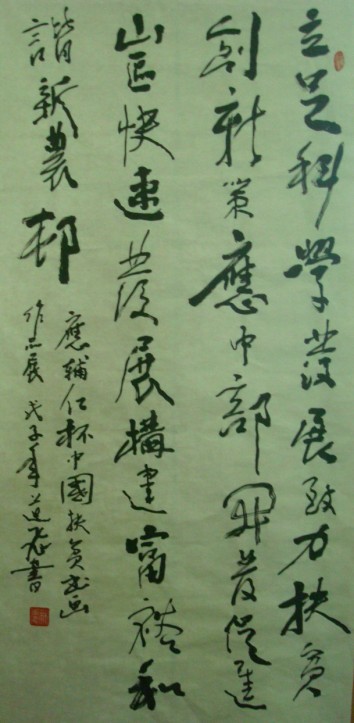 立足科學發展致力扶貧
創新策應中部開發促進
山區快速發展構建富裕和
諧新農邨
應輔仁杯中國扶貧書画
作品展 戊子年書